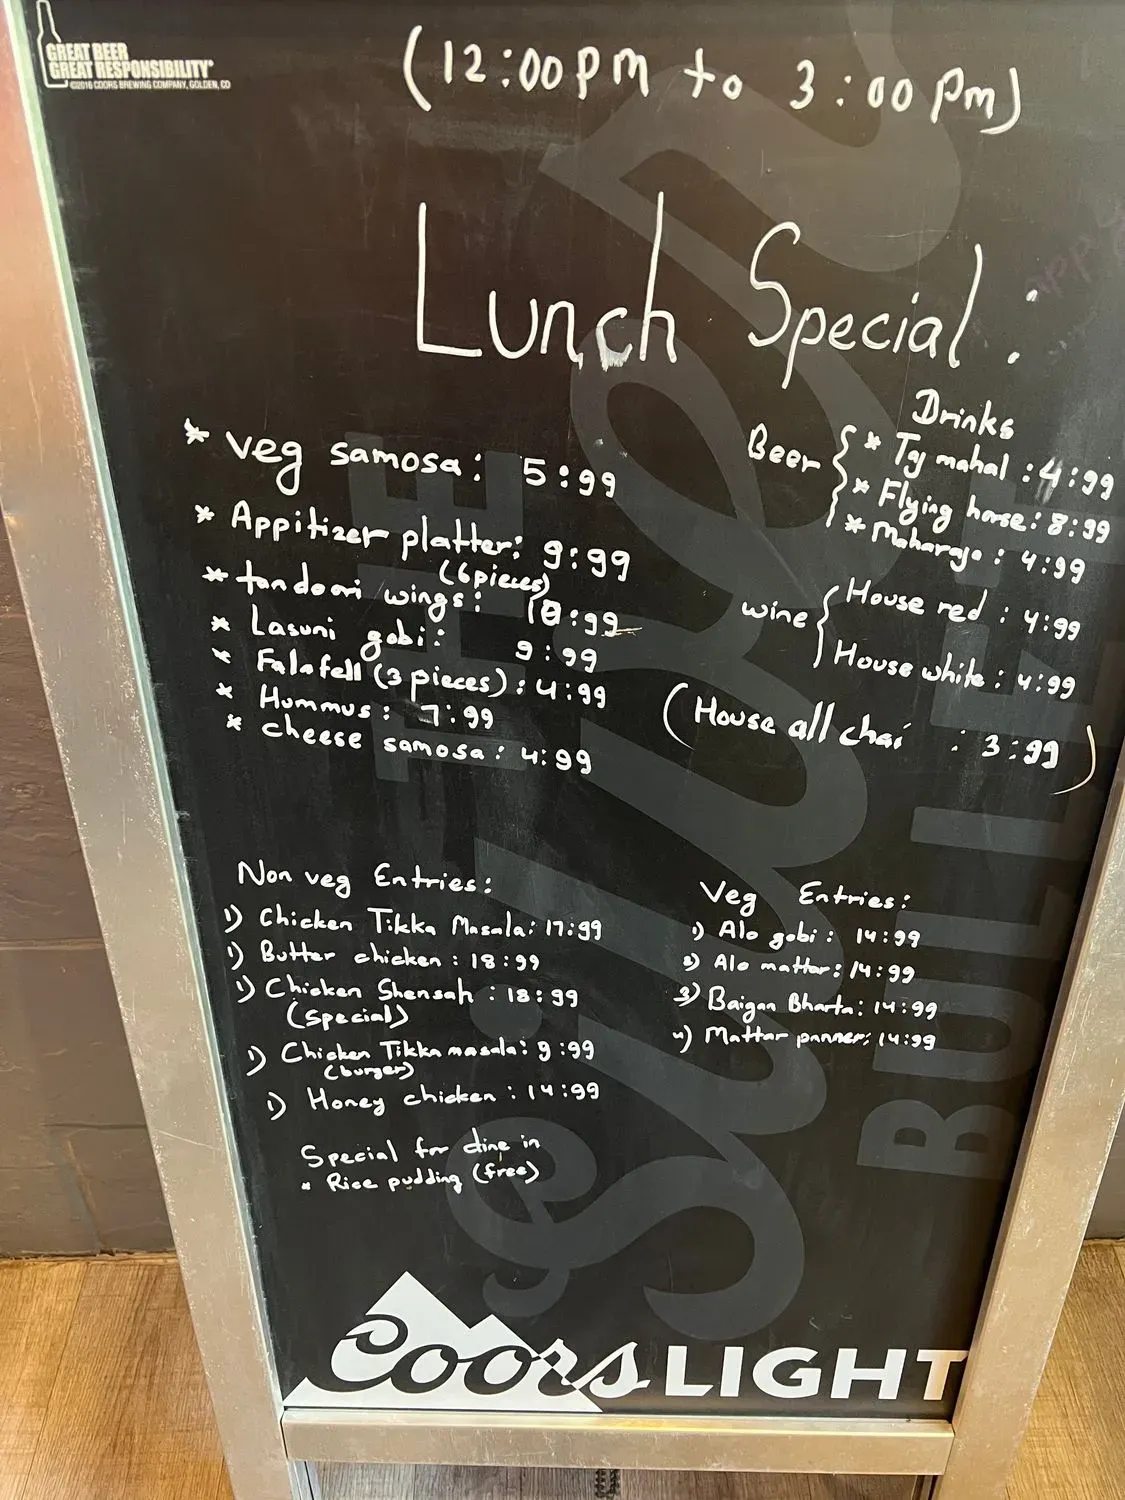 GREAT BEER
GREAT RESPONSIBILITY®
©2016 COORS BREWING COMPANY, GOLDEN, CO
(12:00pm to 3:00pm)
Lunch Special :
* Veg samosa: 5:99
* Appitizer platter: 9:99
(6pieces)
* tandoori wings: 10:99
* Lasuni gobi: 9:99
* Falafell (3 pieces) : 4:99
* Hummus : 7:99
* cheese samosa : 4:99
Drinks
Beer
* Taj mahal : 4:99
* Flying horse : 8:99
* Maharaja : 4:99
wine
House red : 4:99
House white : 4:99
(House all chai : 3:99)
Non veg Entries:
1) Chicken Tikka Masala: 17:99
1) Butter chicken : 18:99
1) Chicken Shensah : 18:99
(special)
1) Chicken Tikka masala: 9:99
(burger)
1) Honey chicken : 14:99
Special for dine in
* Rice pudding (free)
Veg Entries:
1) Alo gobi : 14:99
2) Alo mattar: 14:99
3) Baigan Bharta: 14:99
4) Mattar panner: 14:99
THE
Silver
BULLET
Coors LIGHT